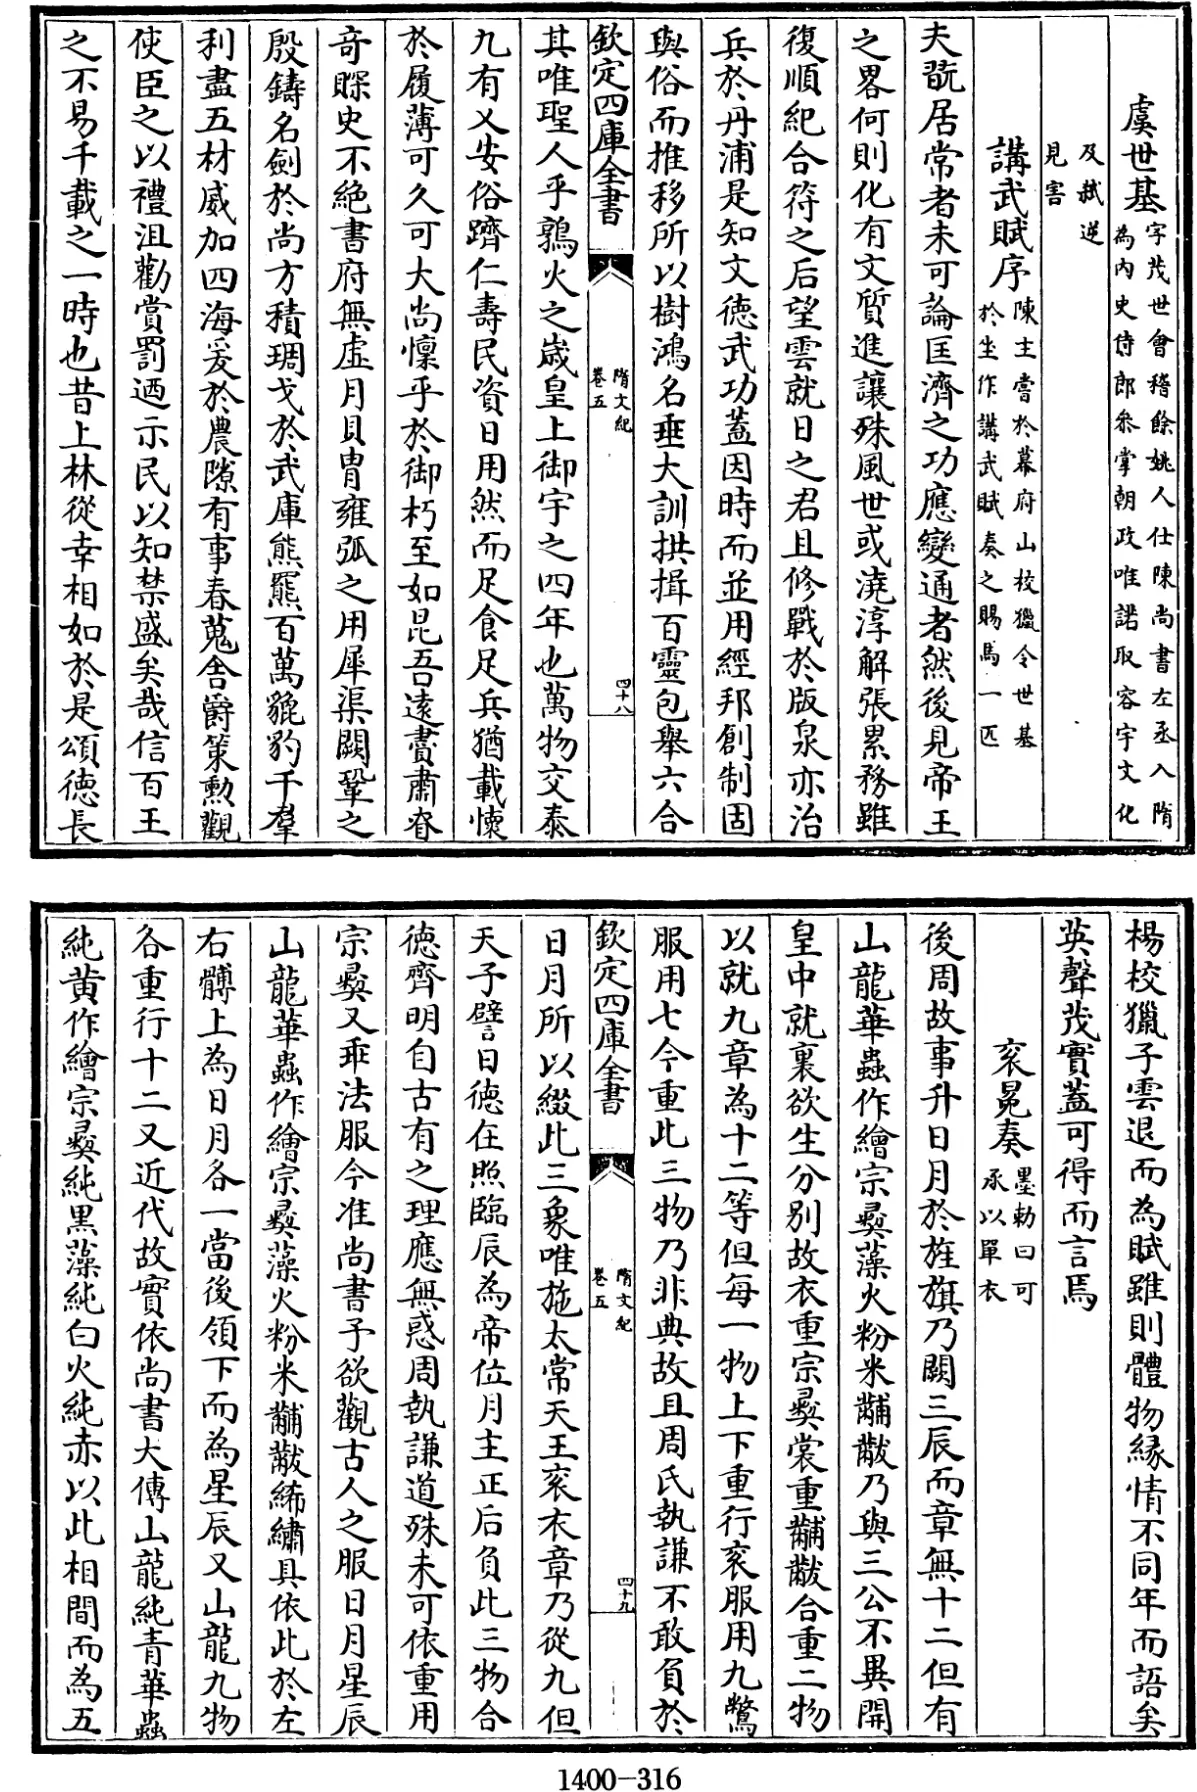 虞世基字茂世會稽餘姚人仕陳尚書左丞入隋為内史侍郎叅掌朝政唯諾取容宇文化
及弑逆見害
講武賦序陳主嘗於幕府山校獵令世基於坐作講武賦奏之賜馬一匹
夫翫居常者未可論匡濟之功應變通者然後見帝王
之畧何則化有文質進讓殊風世或澆淳解張累務雖
復順紀合符之后望雲就日之君且修戰於版泉亦治
兵於丹浦是知文德武功蓋因時而並用經邦創制固
與俗而推移所以樹鴻名垂大訓拱揖百靈包舉六合
欽定四庫全書
隋文紀
卷五
四十八
其唯聖人乎鶉火之歲皇上御宇之四年也萬物交泰
九有乂安俗躋仁壽民資日用然而足食足兵猶載懷
於履薄可久可大尚懍乎於御朽至如昆吾遠賮肅眘
奇賝史不絶書府無虚月貝冑雍弧之用犀渠闕鞏之
殷鑄名劍於尚方積琱戈於武庫熊羆百萬貔豹千羣
利盡五材威加四海爰於農隙有事春蒐舎爵策勲觀
使臣之以禮沮勸賞罰迺示民以知禁盛矣哉信百王
之不易千載之一時也昔上林從幸相如於是頌徳長
楊校獵子雲退而為賦雖則體物緣情不同年而語矣
英聲茂實蓋可得而言焉
衮冕奏墨勅曰可承以單衣
後周故事升日月於旌旗乃闕三辰而章無十二但有
山龍華蟲作繪宗彞藻火粉米黼黻乃與三公不異開
皇中就裏欲生分别故衣重宗彞裳重黼黻合重二物
以就九章為十二等但每一物上下重行衮服用九鷩
服用七今重此三物乃非典故且周氏執謙不敢負於
欽定四庫全書
隋文紀
卷五
四十九
日月所以綴此三象唯施太常天王衮衣章乃從九但
天子譬日徳在照臨辰為帝位月主正后負此三物合
徳齊明自古有之理應無惑周執謙道殊未可依重用
宗彞又乖法服今准尚書予欲觀古人之服日月星辰
山龍華蟲作繪宗彞藻火粉米黼黻絺繡具依此於左
右髆上為日月各一當後領下而為星辰又山龍九物
各重行十二又近代故實依尚書大傳山龍純青華蟲
純黄作繪宗彞純黒藻純白火純赤以此相間而為五
1400-316